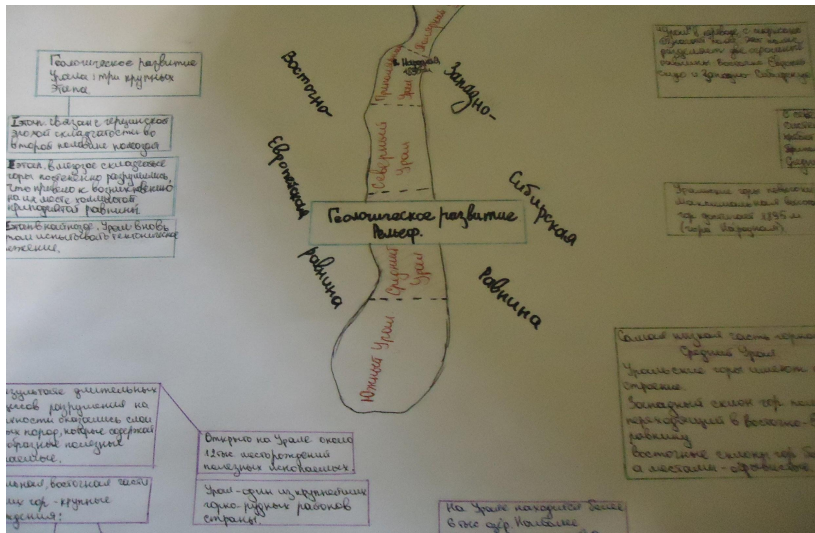 Геологическое развитие
Урала: три крупных
этапа
I этап. связан с герцинской
эпохой складчатости во
второй половине палеозоя
этап. в мезозое складчатые
горы постепенно разрушились,
что привело к возникновению
на их месте холмистой
приподнятой равнины.
этап в кайнозое. Урал вновь
испытывать тектоническое
Восточно-
Европейская
равнина
Полярный
Приполярный
Урал
г. Народная
1895м
Северный Урал
Геологическое развитие
Рельеф.
Средний
Урал
Южный Урал
Западно-
Сибирская
Равнина
"Урал" в переводе с
разделяет две огромные
Восточно-Европей
скую и Западно-Сибирскую
Уральские горы
максимальная высота
гор достигает 1895 м
(гора Народная).
Самая низкая часть горной
Средний Урал
Уральские горы имеют
строение.
Западный склон гор
переходящий в восточно-
равнину
восточные склоны гор
а местами - обрывистые.
длительных
разрушения на
оказались слои
пород, которые содержат
полезные
восточная часть
гор - крупные
Открыто на Урале около
12 тыс. месторождений
полезных ископаемых.
Урал - один из крупнейших
горно-рудных районов
страны.
На Урале находится более
6 тыс озёр Наиболее